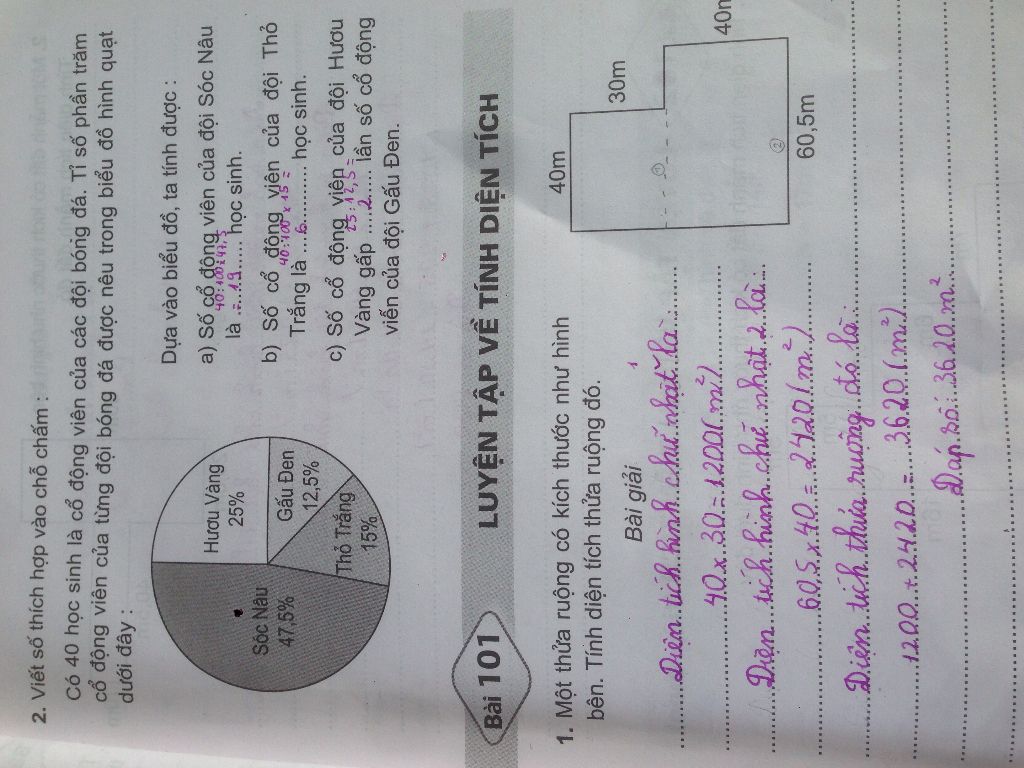 2. Viết số thích hợp vào chỗ chấm :
Có 40 học sinh là cổ động viên của các đội bóng đá. Tỉ số phần trăm
cổ động viên của từng đội bóng đá được nêu trong biểu đồ hình quạt
dưới đây :
Hươu Vàng
25%
Gấu Đen
12,5%
Thỏ Trắng
15%
Sóc Nâu
47,5%
Dựa vào biểu đồ, ta tính được :
a) Số cổ động viên của đội Sóc Nâu
40:100x47,5
là = ....19...... học sinh.
b) Số cổ động viên của đội Thỏ
40:100 x 15 =
Trắng là ...6........ học sinh.
c) Số cổ động viên của đội Hươu
25 : 12,5 =
Vàng gấp ....2...... lần số cổ động
viên của đội Gấu Đen.
Bài 101 LUYỆN TẬP VỀ TÍNH DIỆN TÍCH
1. Một thửa ruộng có kích thước như hình
bên. Tính diện tích thửa ruộng đó.
40m
30m
40m
1
2
60,5m
Bài giải
Diện tích hình chữ nhật 1 là
40 x 30 = 1200 (m²)
Diện tích hình chữ nhật 2 là
60,5 x 40 = 2420 (m²)
Diện tích thửa ruộng đó là
1200 + 2420 = 3620 (m²)
Đáp số: 3620 m²